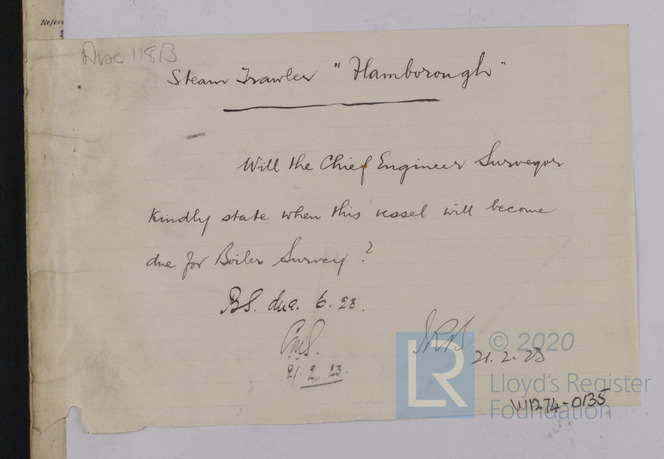 Disc 118B
Steam Trawler "Flamborough"
Will the Chief Engineer Surveyor
kindly state when this vessel will become
due for Boiler Survey?
BS. due. 6. 23.
21. 2. 23.
21. 2. 23
© 2020
LR
Lloyd's Register
Foundation
W1274-0135